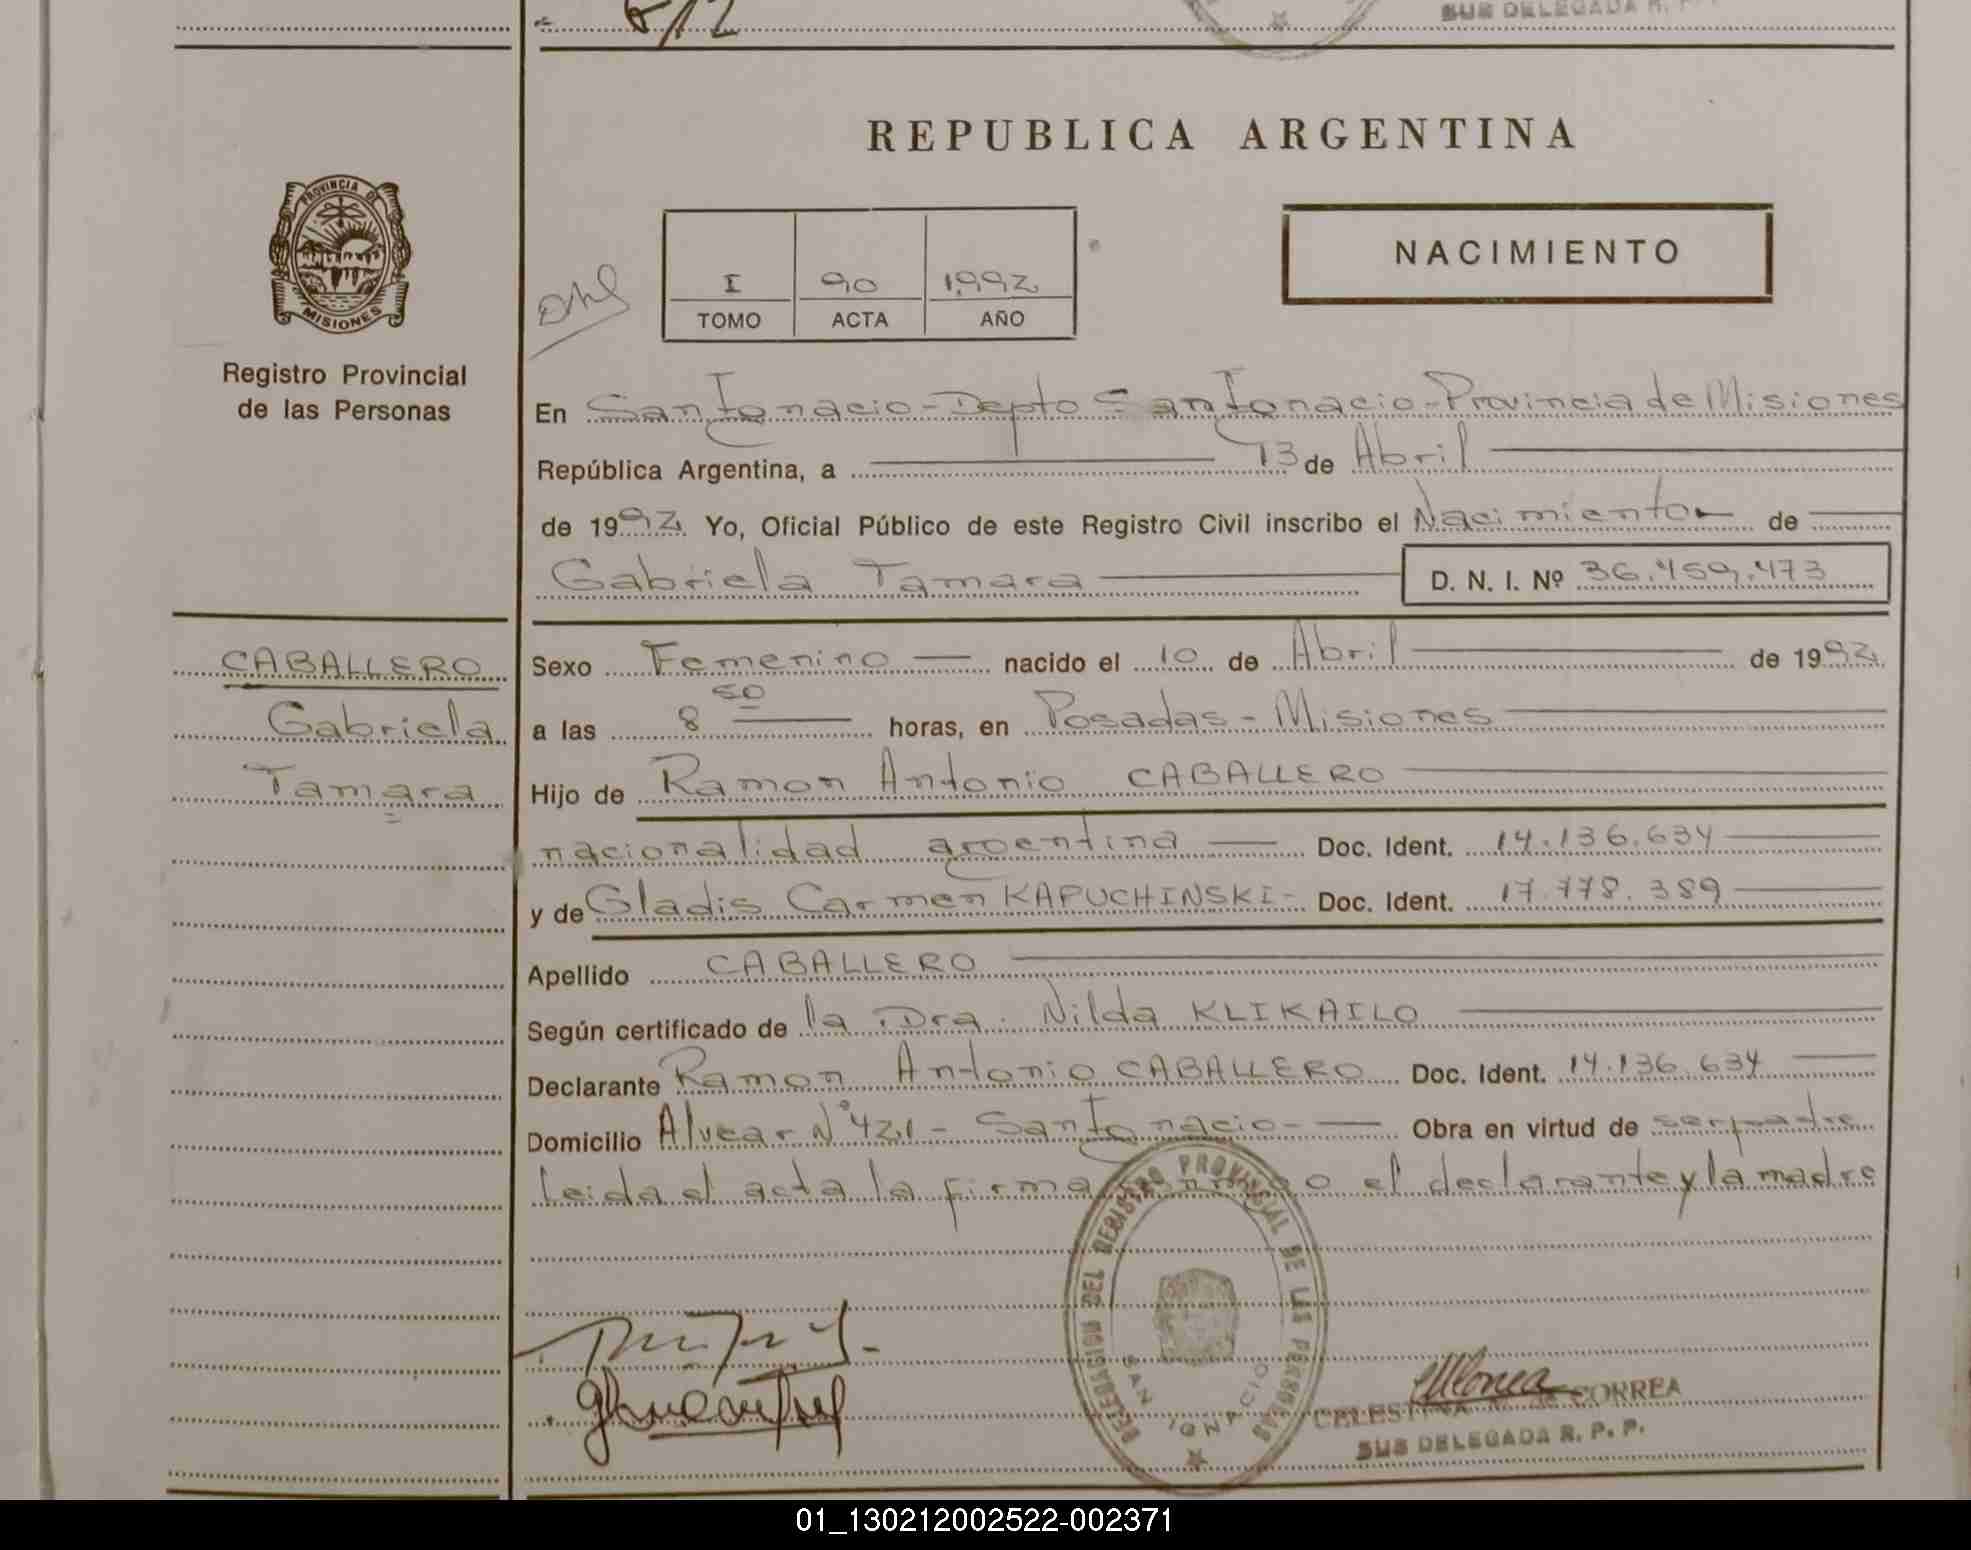 8/12
SUB DELEGADA R. P. P.
REPUBLICA ARGENTINA
PROVINCIA DE
MISIONES
Registro Provincial
de las Personas
I 90 1992
TOMO ACTA AÑO
NACIMIENTO
En San Ignacio - Depto San Ignacio - Provincia de Misiones
República Argentina, a 13 de Abril
de 1992 Yo, Oficial Público de este Registro Civil inscribo el Nacimiento de
Gabriela Tamara D. N. I. Nº 36.459.473
CABALLERO
Gabriela
Tamara
Sexo Femenino nacido el 10 de Abril de 1992
a las 8 50 horas, en Posadas - Misiones
Hijo de Ramon Antonio CABALLERO
nacionalidad argentina Doc. Ident. 14.136.634
y de Gladis Carmen KAPUCHINSKI - Doc. Ident. 17.778.389
Apellido CABALLERO
Según certificado de la Dra. Nilda KLIKAILO
Declarante Ramon Antonio CABALLERO Doc. Ident. 14.136.634
Domicilio Alvear Nº 421 - San Ignacio - Obra en virtud de ser padre
leida el acta la firma o el declarante y la madre
DELEGACION DEL REGISTRO PROVINCIAL DE LAS PERSONAS
SAN IGNACIO
CELESTINA de CORREA
SUB DELEGADA R. P. P.
01_130212002522-002371